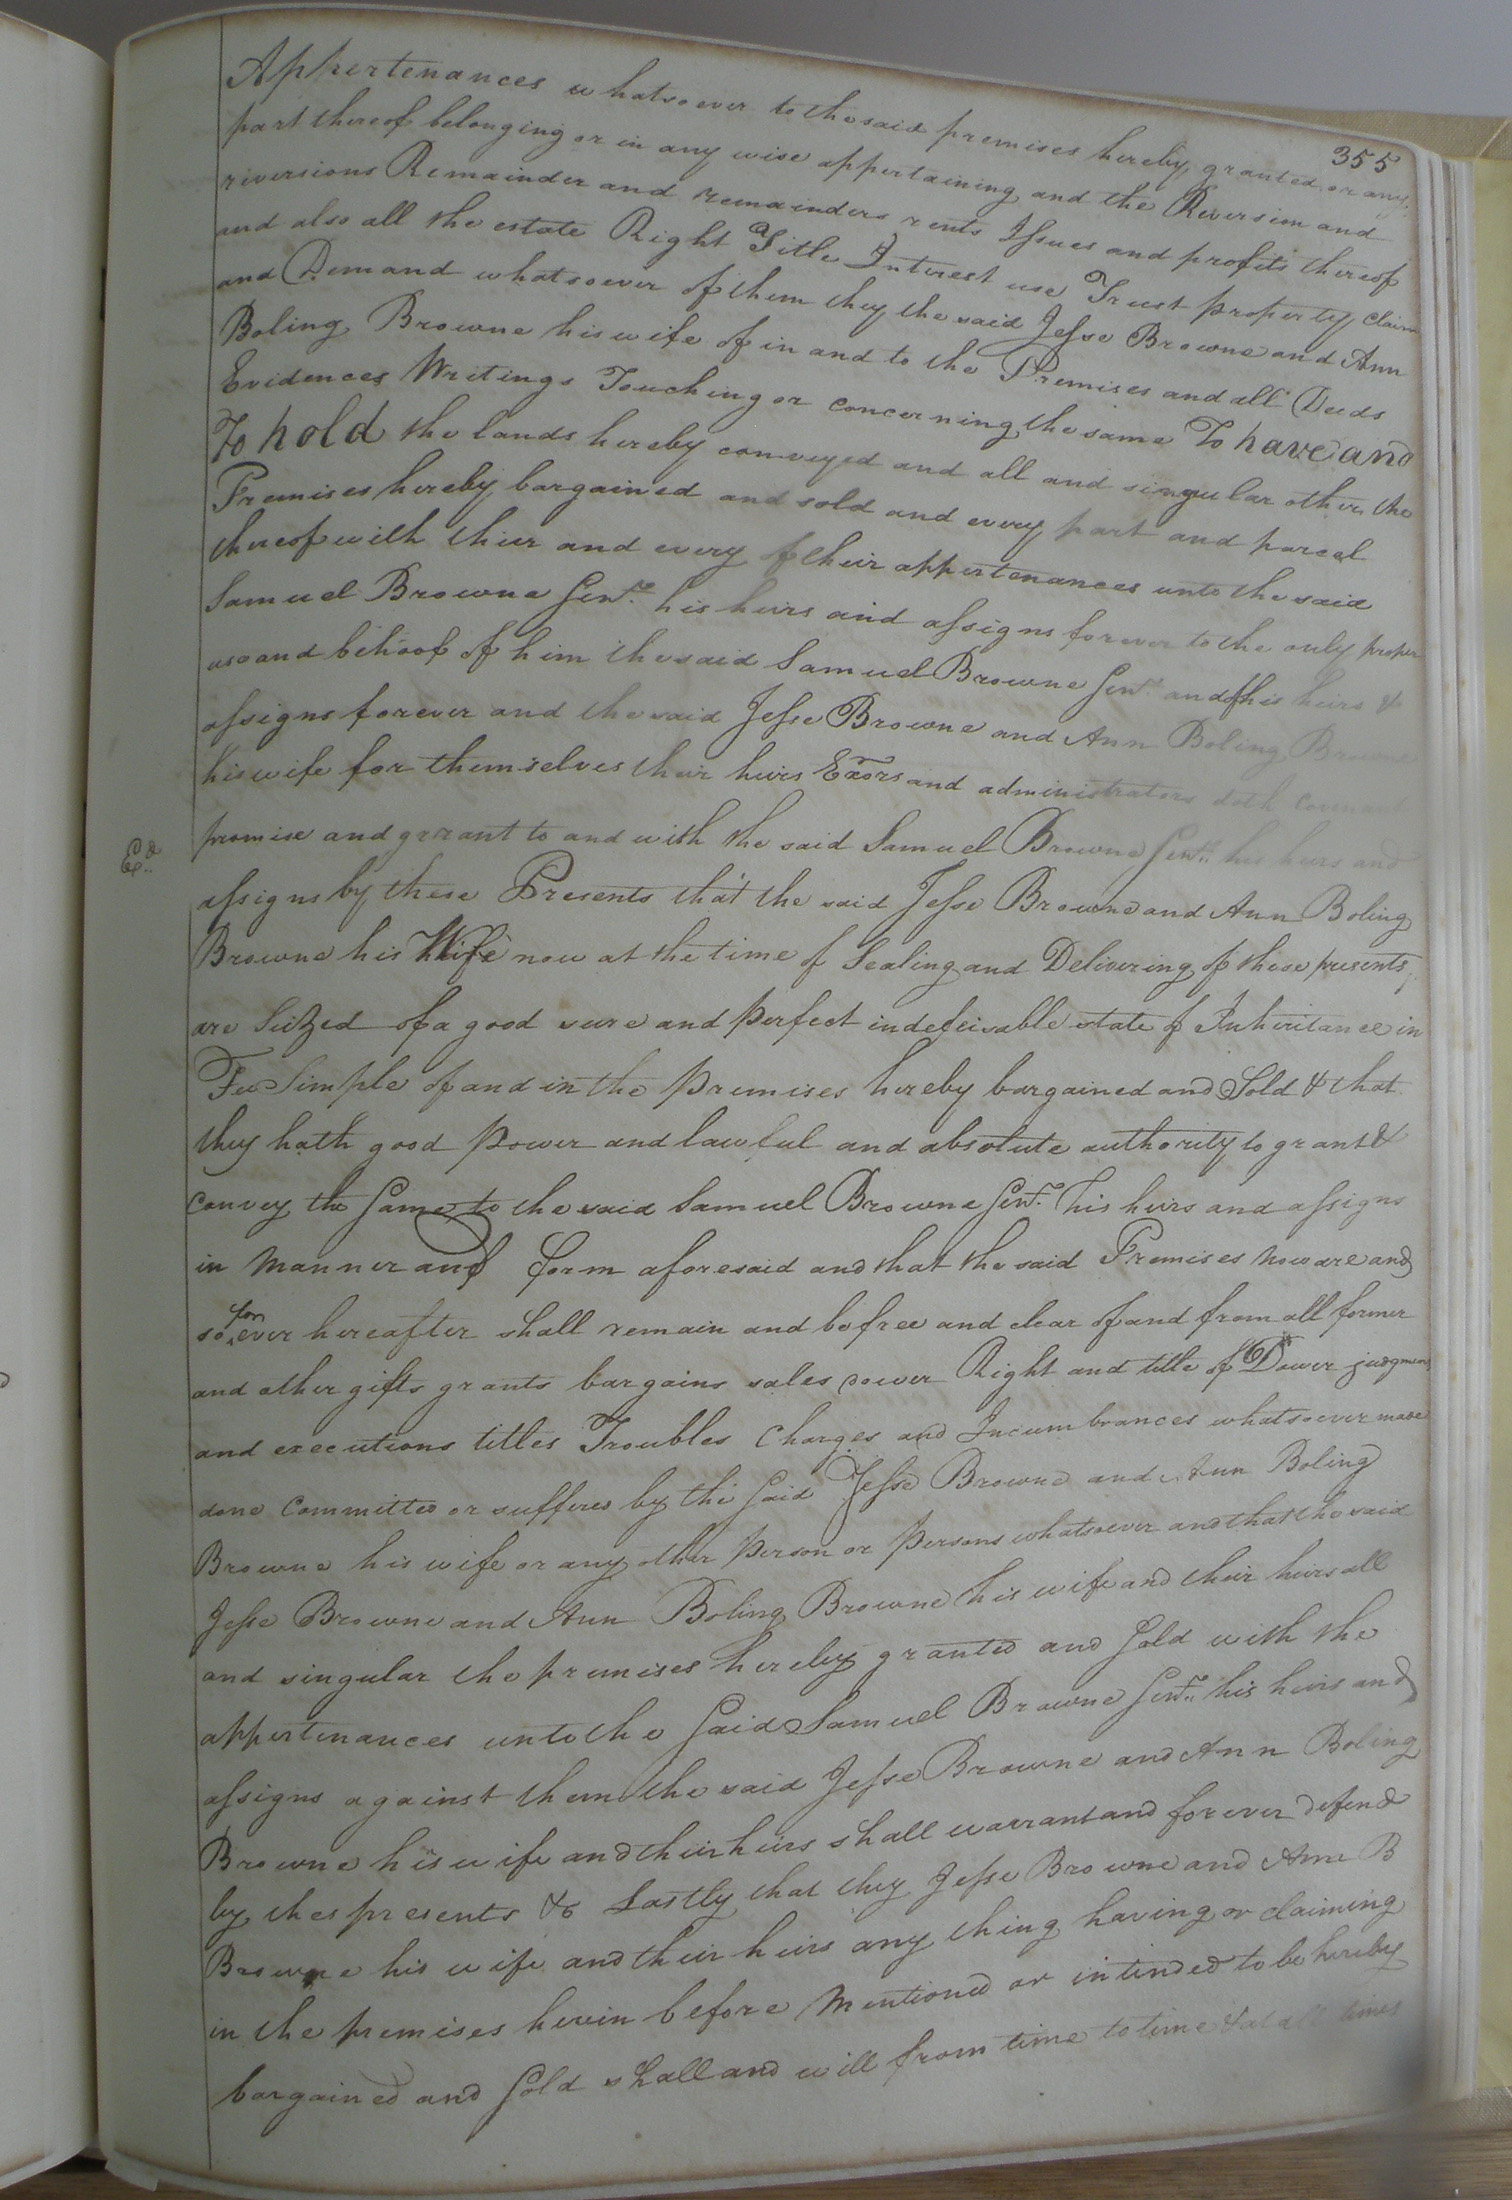 355
Appertenances whatsoever to the said premises hereby granted or any
part thereof belonging or in any wise appertaining and the Reversion and
riversions Remainder and remainders rents Issues and profits thereof
and also all the estate Right Title Interest use Trust property claim
and Demand whatsoever of them they the said Jesse Browne and Ann
Boling Browne his wife of in and to the Premises and all Deeds
Evidences Writings Touching or concerning the same To have and
To hold the lands hereby conveyed and all and singular other the
Premises hereby bargained and sold and every part and parcel
thereof with thier and every of their appertenances unto the said
Samuel Browne Genr. his heirs and assigns forever to the only proper
use and behoof of him the said Samuel Browne Genr. and of his heirs &
assigns forever and the said Jesse Browne and Ann Boling Browne
his wife for themselves their heirs Exors and administrators doth covenant
promise and grant to and with the said Samuel Browne Genr. his heirs and
Ex.d
assigns by these Presents that the said Jesse Browne and Ann Boling
Browne his Wife now at the time of Sealing and Delivering of these presents
are Seized of a good sure and perfect indefeisable estate of Inheritance in
Fee Simple of and in the premises hereby bargained and Sold & that
they hath good Power and lawful and absolute authority to grant &
convey the Same to the said Samuel Browne Genr. his heirs and assigns
in manner and form aforesaid and that the said Premises now are and
so for ever hereafter shall remain and be free and clear of and from all former
and other gifts grants bargains sales dower Right and title of Dower judgment
and executions titles Troubles Charges and Incumbrances whatsoever made
done Committed or suffered by the Said Jesse Browne and Ann Boling
Browne his wife or any other Person or Persons whatsoever and that the said
Jesse Browne and Ann Boling Browne his wife and their heirs all
and singular the premises hereby granted and Sold with the
appertenances unto the Said Samuel Browne Genr. his heirs and
assigns against them the said Jesse Browne and Ann Boling
Browne his wife and their heirs shall warrant and forever defend
by thes presents & Lastly that they Jesse Browne and Ann B
Browne his wife and their heirs any thing having or claiming
in the premises herein before Mentioned or intinded to be hereby
bargained and Sold shall and will from time to time & at all times